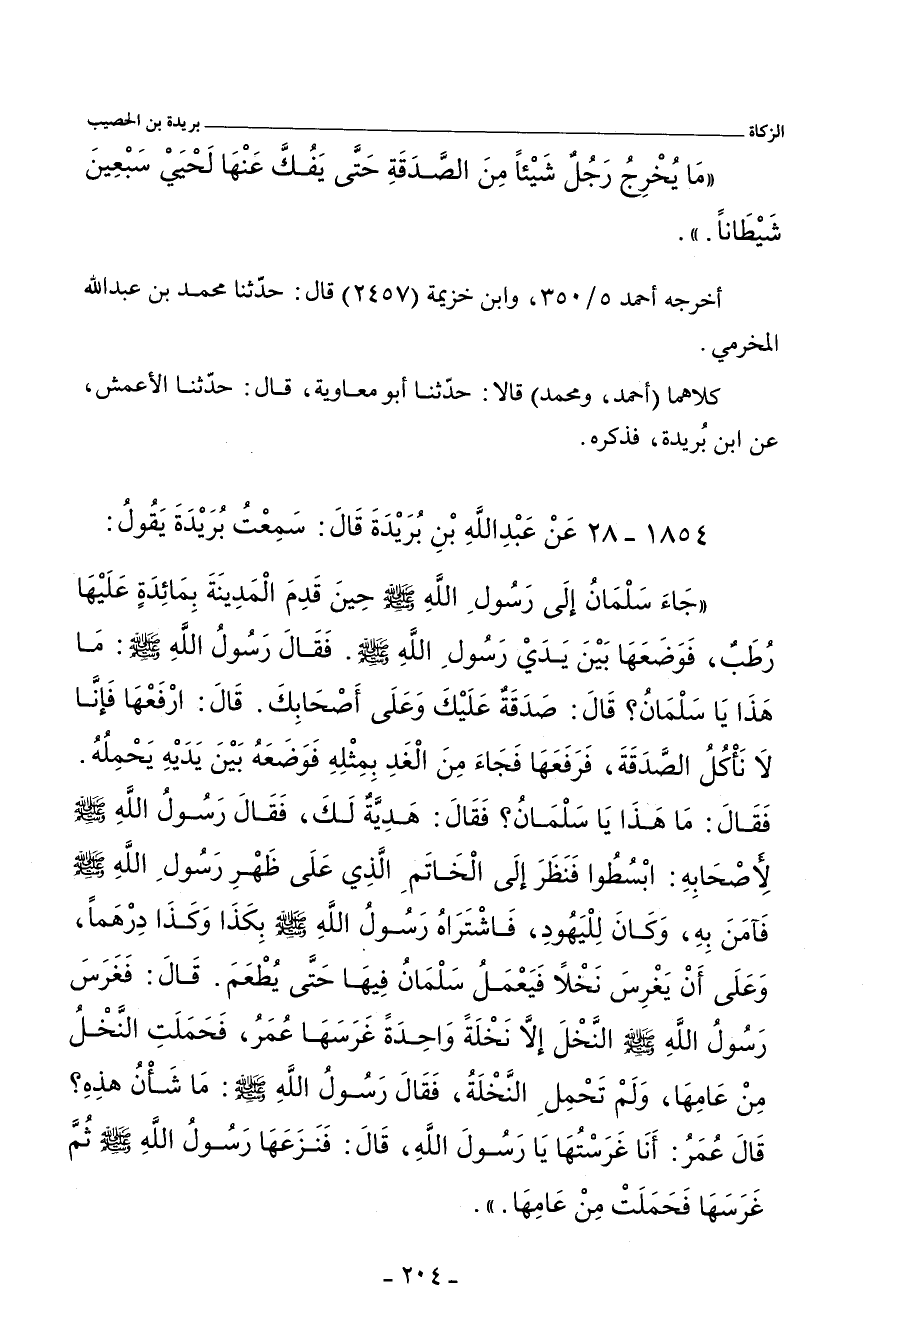 الزكاة ـــــــــــــــــــــــــــــــــــــــــ بريدة بن الحصيب
«مَا يُخْرِجُ رَجُلٌ شَيْئاً مِنَ الصَّدَقَةِ حَتَّى يَفُكَّ عَنْهَا لَحْيَيْ سَبْعِينَ
شَيْطَاناً . » .
أخرجه أحمد ٥/ ٣٥٠، وابن خزيمة (٢٤٥٧) قال: حدّثنا محمد بن عبدالله
المخرمي .
كلاهما (أحمد، ومحمد) قالا: حدّثنا أبو معاوية، قال: حدّثنا الأعمش،
عن ابن بُريدة، فذكره .
١٨٥٤ - ٢٨ عَنْ عَبْدِاللَّهِ بْنِ بُرَيْدَةَ قَالَ: سَمِعْتُ بُرَيْدَةَ يَقُولُ:
«جَاءَ سَلْمَانُ إِلَى رَسُولِ اللَّهِ ﷺ حِينَ قَدِمَ الْمَدِينَةَ بِمَائِدَةٍ عَلَيْهَا
رُطَبٌ، فَوَضَعَهَا بَيْنَ يَدَيْ رَسُولِ اللَّهِ ﷺ . فَقَالَ رَسُولُ اللَّهِ ﷺ: مَا
هَذَا يَا سَلْمَانُ؟ قَالَ: صَدَقَةٌ عَلَيْكَ وَعَلَى أَصْحَابِكَ. قَالَ: ارْفَعْهَا فَإِنَّا
لَا نَأْكُلُ الصَّدَقَةَ، فَرَفَعَهَا فَجَاءَ مِنَ الْغَدِ بِمِثْلِهِ فَوَضَعَهُ بَيْنَ يَدَيْهِ يَحْمِلُهُ.
فَقَالَ: مَا هَذَا يَا سَلْمَانُ؟ فَقَالَ: هَدِيَّةٌ لَكَ، فَقَالَ رَسُولُ اللَّهِ ﷺ
لِأَصْحَابِهِ: ابْسُطُوا فَنَظَرَ إِلَى الْخَاتَمِ الَّذِي عَلَى ظَهْرِ رَسُولِ اللَّهِ ﷺ
فَآمَنَ بِهِ، وَكَانَ لِلْيَهُودِ، فَاشْتَرَاهُ رَسُولُ اللَّهِ ﷺ بِكَذَا وَكَذَا دِرْهَماً،
وَعَلَى أَنْ يَغْرِسَ نَخْلاً فَيَعْمَلُ سَلْمَانُ فِيهَا حَتَّى يُطْعَمَ. قَالَ: فَغَرَسَ
رَسُولُ اللَّهِ ﷺ النَّخْلَ إِلَّا نَخْلَةً وَاحِدَةً غَرَسَهَا عُمَرُ، فَحَمَلَتِ النَّخْلُ
مِنْ عَامِهَا، وَلَمْ تَحْمِلِ النَّخْلَةُ، فَقَالَ رَسُولُ اللَّهِ ﷺ: مَا شَأْنُ هذِهِ؟
قَالَ عُمَرُ: أَنَا غَرَسْتُهَا يَا رَسُولَ اللَّهِ، قَالَ: فَنَزَعَهَا رَسُولُ اللَّهِ ﷺ ثُمَّ
غَرَسَهَا فَحَمَلَتْ مِنْ عَامِهَا . » .
- ٢٠٤ -